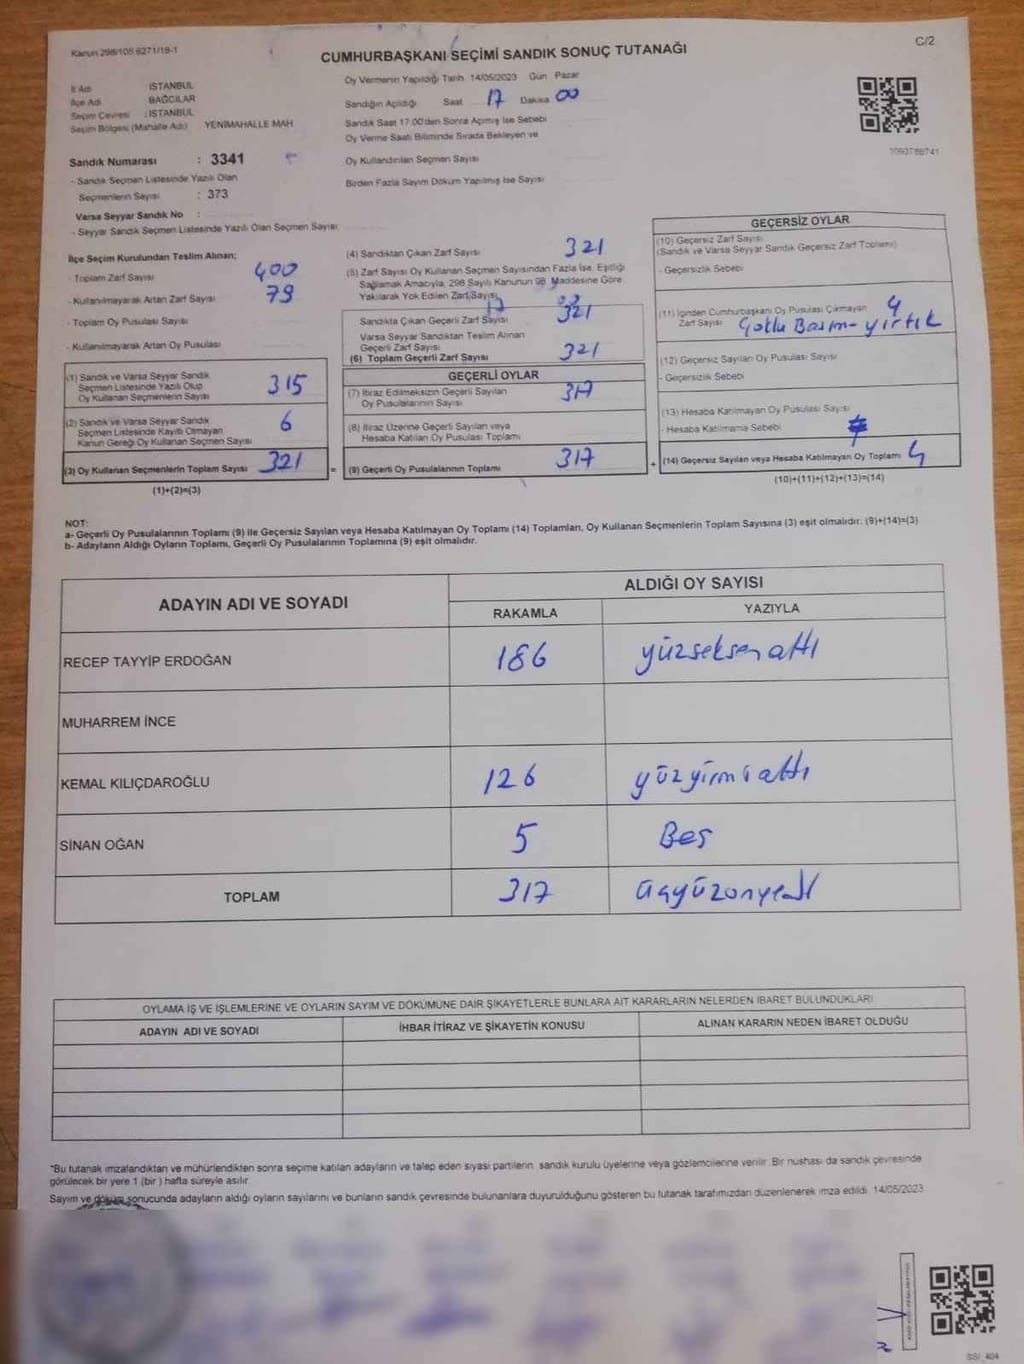 Kanun 298/105 6271/18-1
C/2
CUMHURBAŞKANI SEÇİMİ SANDIK SONUÇ TUTANAĞI
İl Adı İSTANBUL
İlçe Adı BAĞCILAR
Seçim Çevresi : İSTANBUL
Seçim Bölgesi (Mahalle Adı) YENİMAHALLE MAH
Sandık Numarası : 3341
- Sandık Seçmen Listesinde Yazılı Olan
Seçmenlerin Sayısı : 373
Varsa Seyyar Sandık No :
- Seyyar Sandık Seçmen Listesinde Yazılı Olan Seçmen Sayısı:
Oy Vermenin Yapıldığı Tarih 14/05/2023 Gün Pazar
Sandığın Açıldığı Saat 17 Dakika 00
Sandık Saat 17:00'den Sonra Açılmış İse Sebebi
Oy Verme Saati Bitiminde Sırada Bekleyen ve
Oy Kullandırılan Seçmen Sayısı
Birden Fazla Sayım Döküm Yapılmış İse Sayısı
İlçe Seçim Kurulundan Teslim Alınan;
- Toplam Zarf Sayısı 400
- Kullanılmayarak Artan Zarf Sayısı 79
- Toplam Oy Pusulası Sayısı
- Kullanılmayarak Artan Oy Pusulası
(1) Sandık ve Varsa Seyyar Sandık
Seçmen Listesinde Yazılı Olup
Oy Kullanan Seçmenlerin Sayısı 315
(2) Sandık ve Varsa Seyyar Sandık
Seçmen Listesinde Kayıtlı Olmayan
Kanun Gereği Oy Kullanan Seçmen Sayısı 6
(3) Oy Kullanan Seçmenlerin Toplam Sayısı 321 =
(1)+(2)=(3)
(4) Sandıktan Çıkan Zarf Sayısı 321
(5) Zarf Sayısı Oy Kullanan Seçmen Sayısından Fazla İse, Eşitliği
Sağlamak Amacıyla, 298 Sayılı Kanunun 98. Maddesine Göre
Yakılarak Yok Edilen Zarf Sayısı
Sandıkta Çıkan Geçerli Zarf Sayısı 321
Varsa Seyyar Sandıktan Teslim Alınan
Geçerli Zarf Sayısı
(6) Toplam Geçerli Zarf Sayısı 321
GEÇERLİ OYLAR
(7) İtiraz Edilmeksizin Geçerli Sayılan
Oy Pusulalarının Sayısı 317
(8) İtiraz Üzerine Geçerli Sayılan veya
Hesaba Katılan Oy Pusulası Toplamı
(9) Geçerli Oy Pusulalarının Toplamı 317 +
GEÇERSİZ OYLAR
(10) Geçersiz Zarf Sayısı
(Sandık ve Varsa Seyyar Sandık Geçersiz Zarf Toplamı)
- Geçersizlik Sebebi
(11) İçinden Cumhurbaşkanı Oy Pusulası Çıkmayan 4
Zarf Sayısı Çoklu Basım-yırtık
(12) Geçersiz Sayılan Oy Pusulası Sayısı
- Geçersizlik Sebebi
(13) Hesaba Katılmayan Oy Pusulası Sayısı
- Hesaba Katılmama Sebebi
(14) Geçersiz Sayılan veya Hesaba Katılmayan Oy Toplamı 4
(10)+(11)+(12)+(13)=(14)
NOT:
a- Geçerli Oy Pusulalarının Toplamı (9) ile Geçersiz Sayılan veya Hesaba Katılmayan Oy Toplamı (14) Toplamları, Oy Kullanan Seçmenlerin Toplam Sayısına (3) eşit olmalıdır. (9)+(14)=(3)
b- Adayların Aldığı Oyların Toplamı, Geçerli Oy Pusulalarının Toplamına (9) eşit olmalıdır.
ADAYIN ADI VE SOYADI
ALDIĞI OY SAYISI
RAKAMLA YAZIYLA
RECEP TAYYİP ERDOĞAN 186 yüzseksenaltı
MUHARREM İNCE
KEMAL KILIÇDAROĞLU 126 yüzyirmialtı
SİNAN OĞAN 5 Beş
TOPLAM 317 üçyüzonyedi
OYLAMA İŞ VE İŞLEMLERİNE VE OYLARIN SAYIM VE DÖKÜMÜNE DAİR ŞİKAYETLERLE BUNLARA AİT KARARLARIN NELERDEN İBARET BULUNDUKLARI
ADAYIN ADI VE SOYADI İHBAR İTİRAZ VE ŞİKAYETİN KONUSU ALINAN KARARIN NEDEN İBARET OLDUĞU
*Bu tutanak imzalandıktan ve mühürlendikten sonra seçime katılan adayların ve talep eden siyasi partilerin, sandık kurulu üyelerine veya gözlemcilerine verilir. Bir nüshası da sandık çevresinde
görülecek bir yere 1 (bir) hafta süreyle asılır.
Sayım ve döküm sonucunda adayların aldığı oyların sayılarını ve bunların sandık çevresinde bulunanlara duyurulduğunu gösteren bu tutanak tarafımızdan düzenlenerek imza edildi. 14/05/2023